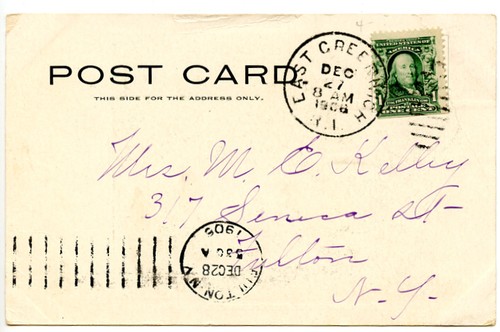 POST CARD
THIS SIDE FOR THE ADDRESS ONLY.
EAST GREENWICH
DEC
27
8 AM
1906
R.I.
UNITED STATES OF AMERICA
1 1
Mrs. M. E. Kelley
317 Seneca St-
Fulton
N. Y.
FULTON, N.Y.
DEC 28
5 30 A
1906